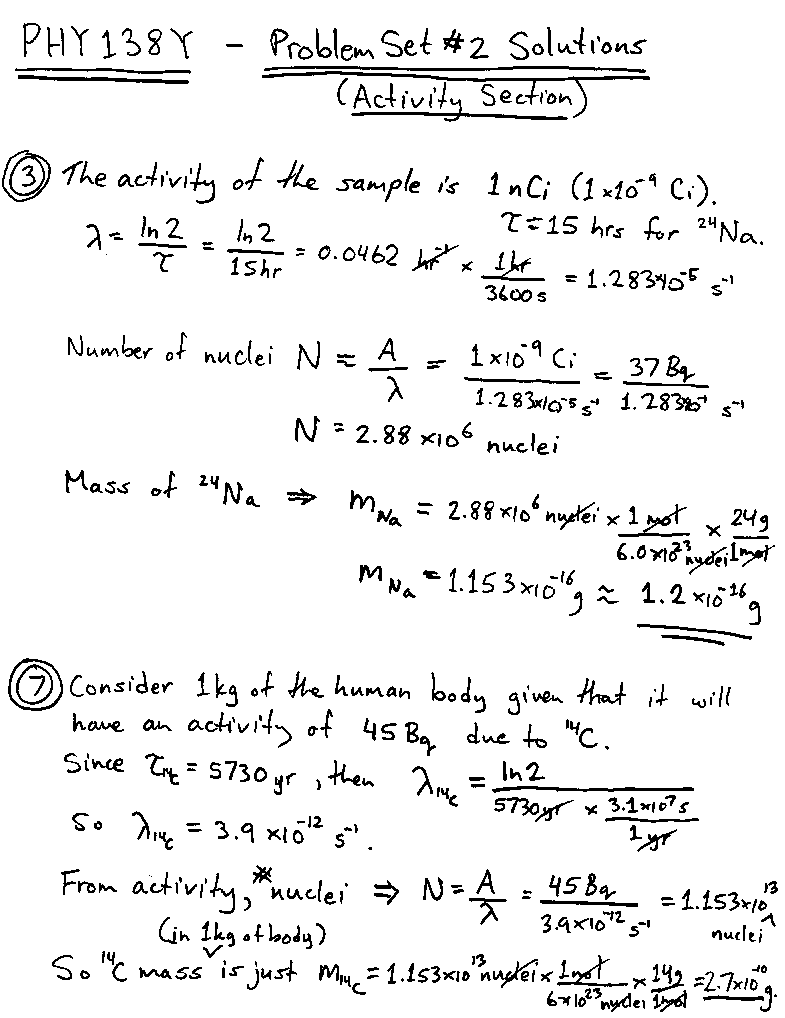 PHY138Y - Problem Set #2 Solutions
(Activity Section)
③ The activity of the sample is 1nCi (1×10⁻⁹ Ci).
τ=15 hrs for ²⁴Na.
λ = ln 2/τ = ln 2/15hr = 0.0462 hr⁻¹ × 1hr/3600s = 1.283×10⁻⁵ s⁻¹
Number of nuclei N = A/λ = 1×10⁻⁹ Ci/1.283×10⁻⁵ s⁻¹ = 37 Bq/1.283×10⁻⁵ s⁻¹
N = 2.88×10⁶ nuclei
Mass of ²⁴Na ⇒ m_Na = 2.88×10⁶ nuclei × 1 mol/6.0×10²³ nuclei × 24g/1mol
m_Na = 1.153×10⁻¹⁶ g ≈ 1.2×10⁻¹⁶ g
⑦ Consider 1kg of the human body given that it will
have an activity of 45 Bq due to ¹⁴C.
Since τ_¹⁴C = 5730 yr, then λ_¹⁴C = ln 2/(5730yr × 3.1×10⁷s/1yr)
So λ_¹⁴C = 3.9×10⁻¹² s⁻¹.
From activity, # nuclei ⇒ N = A/λ = 45 Bq/3.9×10⁻¹² s⁻¹ = 1.153×10¹³ nuclei
(in 1kg of body)
So ¹⁴C mass is just m_¹⁴C = 1.153×10¹³ nuclei × 1mol/6×10²³ nuclei × 14g/1mol = 2.7×10⁻¹⁰ g.